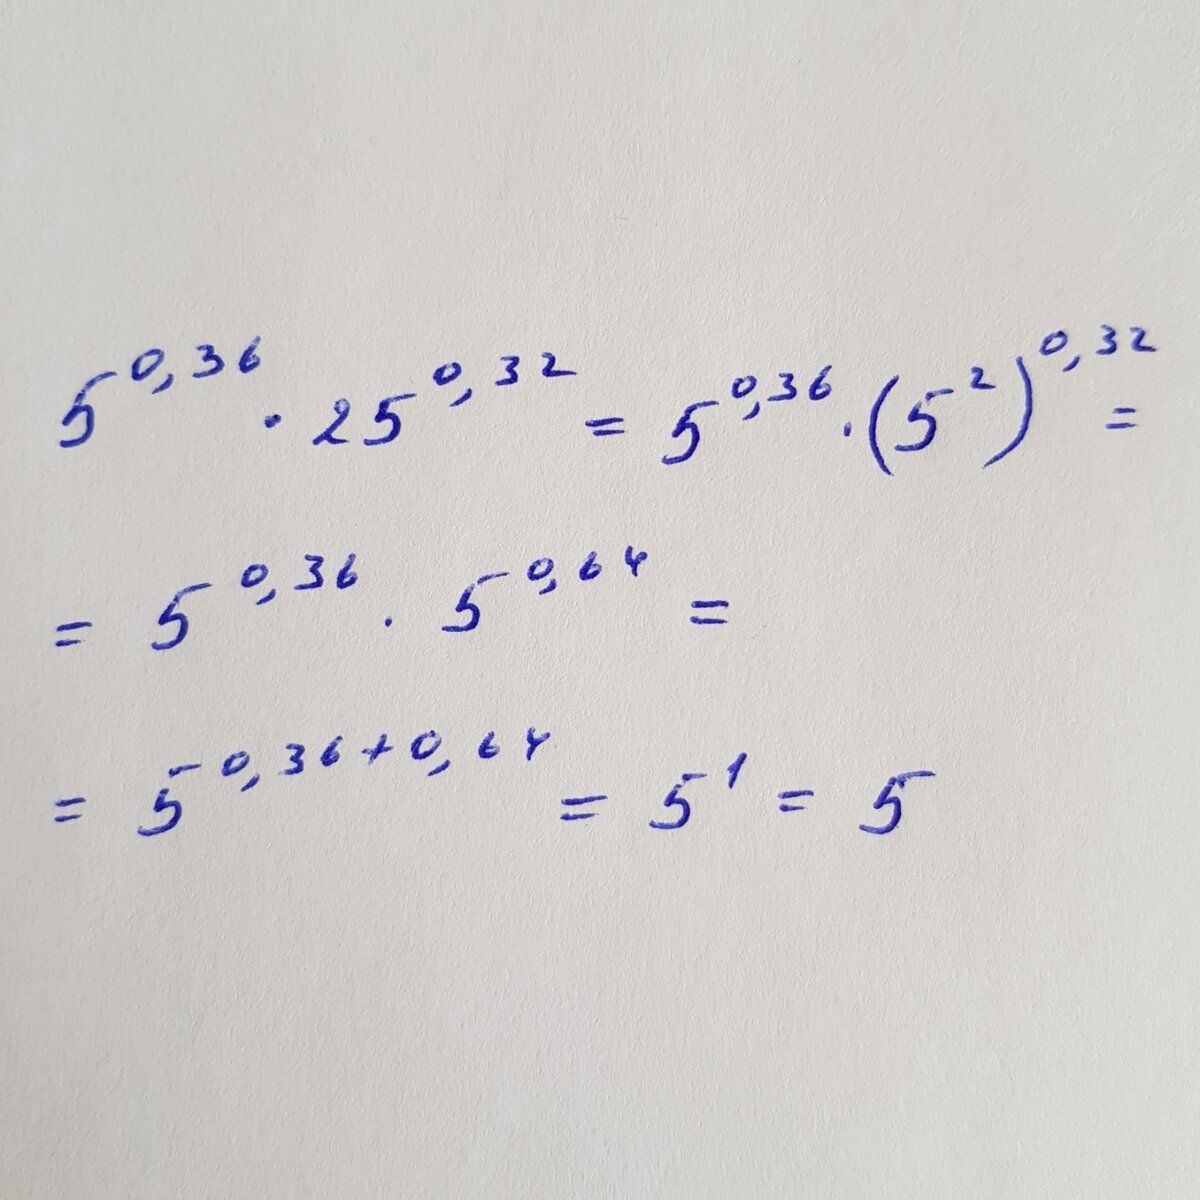 5^0,36 · 25^0,32 = 5^0,36 · (5^2)^0,32 =
= 5^0,36 · 5^0,64 =
= 5^0,36+0,64 = 5^1 = 5